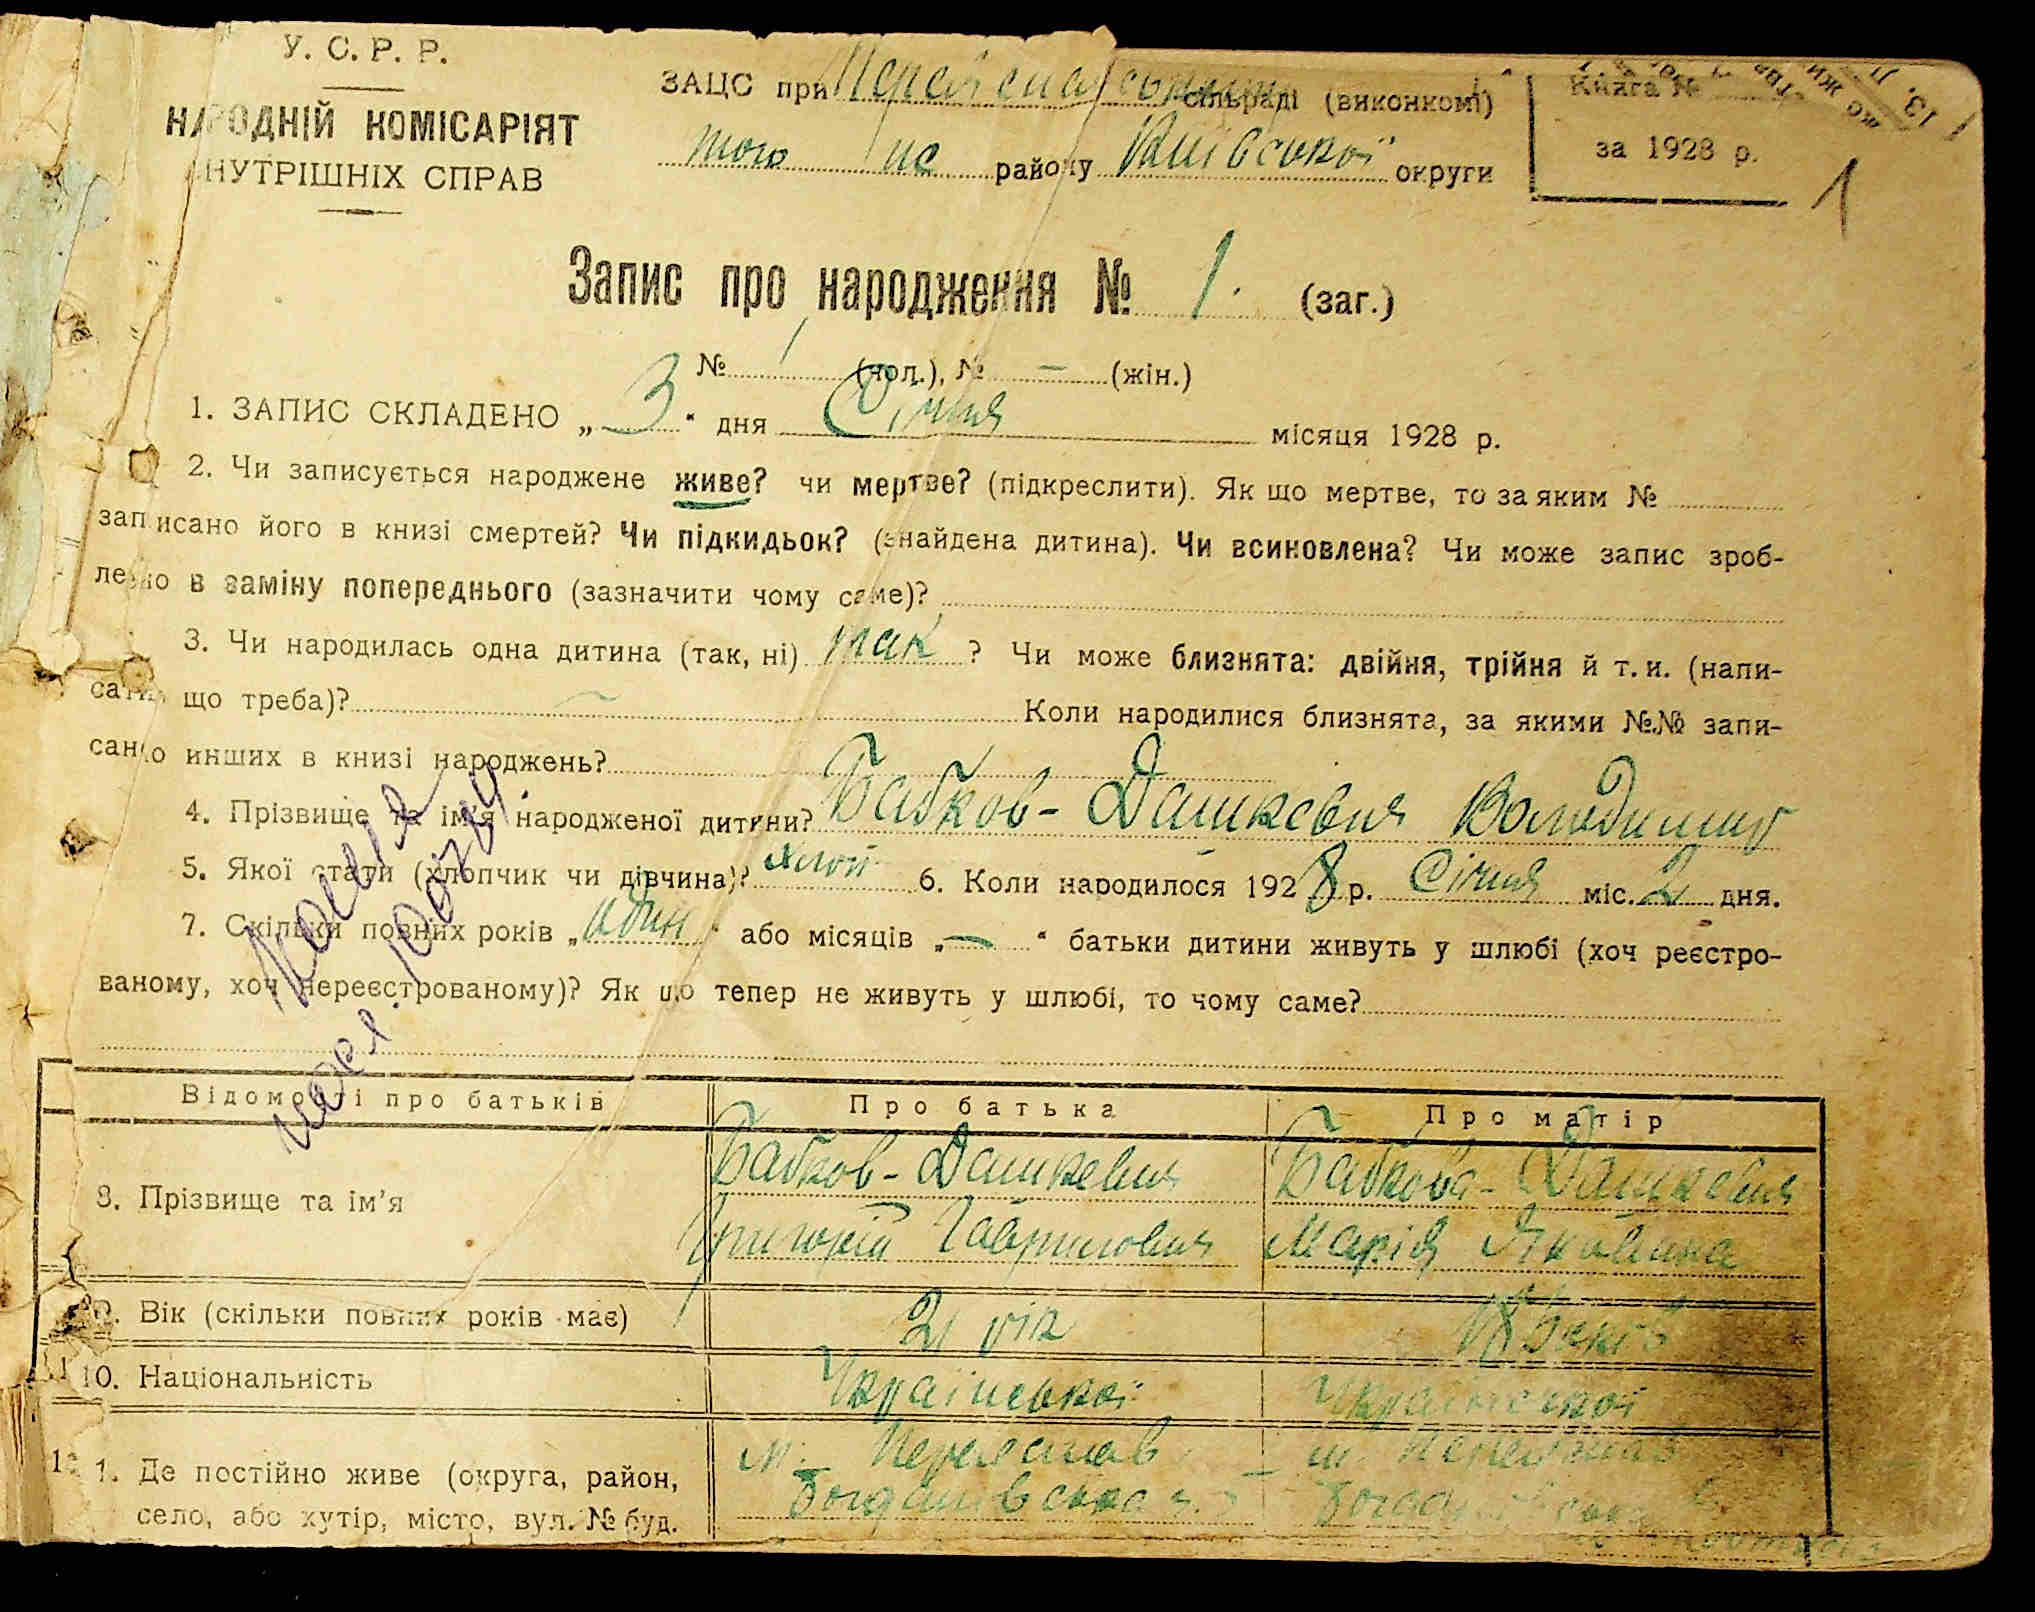 У. С. Р. Р.
НАРОДНІЙ КОМІСАРІЯТ
ВНУТРІШНІХ СПРАВ
ЗАЦС при Переяславському сільраді (виконкомі)
того ж району Київської округи
Книга №
за 1928 р.
1
Запис про народження № 1. (заг.)
№ 1 (чол.), № — (жін.)
1. ЗАПИС СКЛАДЕНО „3" дня Січня місяця 1928 р.
2. Чи записується народжене живе? чи мертве? (підкреслити). Як що мертве, то за яким №
записано його в книзі смертей? Чи підкидьок? (знайдена дитина). Чи всиновлена? Чи може запис зроб-
лено в заміну попереднього (зазначити чому саме)?
3. Чи народилась одна дитина (так, ні) так ? Чи може близнята: двійня, трійня й т. и. (напи-
сати, що треба)? — Коли народилися близнята, за якими №№ запи-
сано инших в книзі народжень?
4. Прізвище та ім'я народженої дитини? Бабков-Дашкевич Володимир
5. Якої стати (хлопчик чи дівчина)? 6. Коли народилося 1928 р. Січня міс. 2 дня.
7. Скільки повних років „один" або місяців „—" батьки дитини живуть у шлюбі (хоч реєстро-
ваному, хоч нереєстрованому)? Як що тепер не живуть у шлюбі, то чому саме?
Відомості про батьків Про батька Про матір
8. Прізвище та ім'я Бабков-Дашкевич Бабкова-Дашкевич
Григорій Гаврилович Марія Яковівна
9. Вік (скільки повних років має) 21 рік 18 років
10. Національність Української Української
11. Де постійно живе (округа, район, м. Переяслав м. Переяслав
село, або хутір, місто, вул. № буд. Богданівська